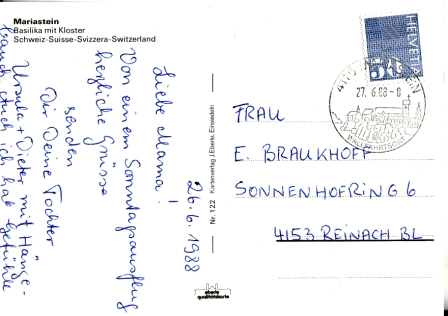 Mariastein
Basilika mit Kloster
Schweiz-Suisse-Svizzera-Switzerland
26.6.1988
Liebe Mama!
Von einem Sonntagsausflug
herzliche Grüsse
senden
Dir Deine Tochter
Ursula + Dieter mit Hänge-
bauch auch ich hab Gefühle
Nr. 122 Kartenverlag J. Eberle, Einsiedeln
eberle
qualitätskarte
HELVETIA
27.6.88-8
WALLFAHRTSORT
FRAU
E. BRAUKHOFF
SONNENHOFRING 6
4153 REINACH BL